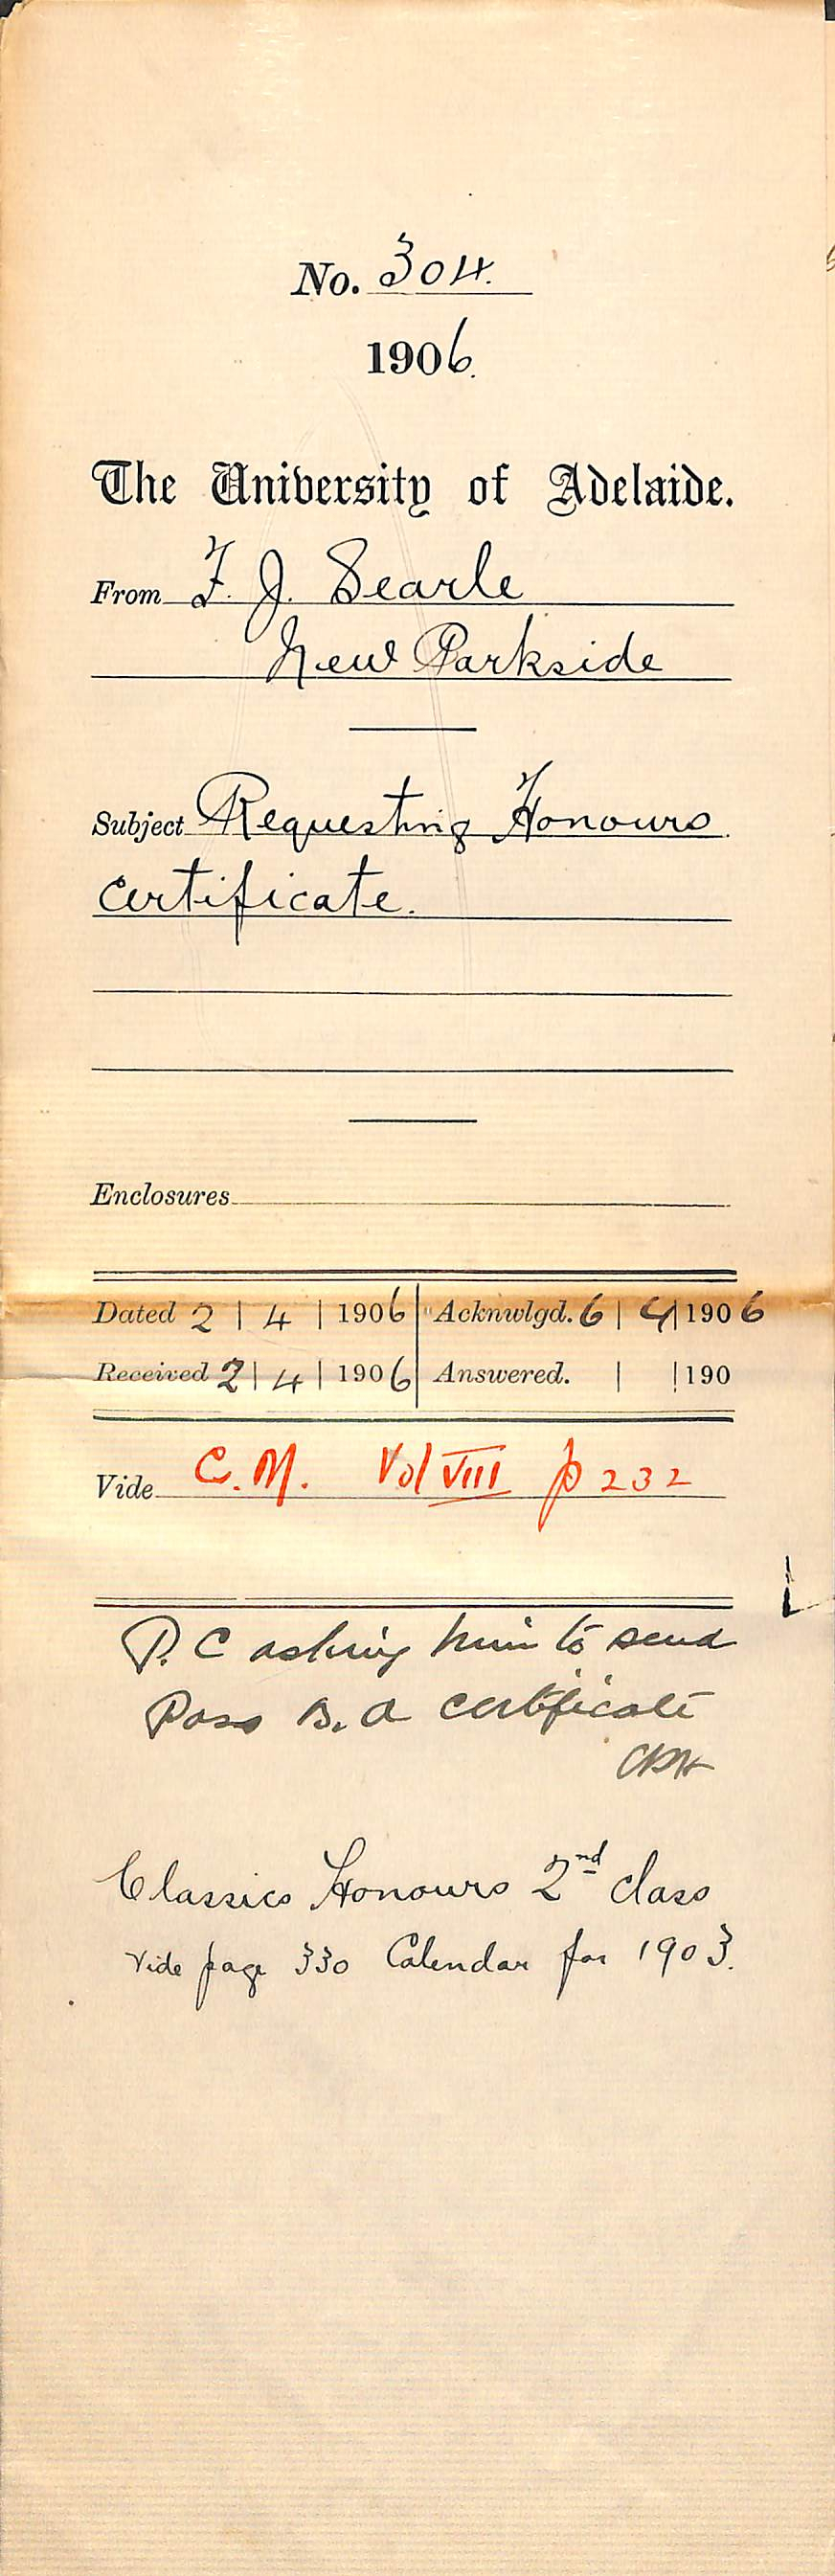 No. 304.
1906.
The University of Adelaide.
From F. J. Searle
New Parkside
Subject Requesting Honours
Certificate.
Enclosures
Dated 2 | 4 | 1906 Acknwlgd. 6 | 4 | 1906
Received 2 | 4 | 1906 Answered. | | 190
Vide C.M. Vol VIII p 232
P. C asking him to send
Pass B. A certificate
Classics Honours 2nd class
Vide page 330 Calendar for 1903.